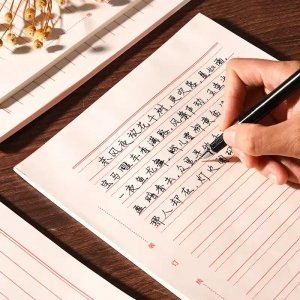 东风夜放花千树,更吹落,星如雨
宝马雕车香满路,凤箫声动,玉壶
一夜鱼龙舞。蛾儿雪柳黄金
盈暗香去,众里寻
那人却在,灯火